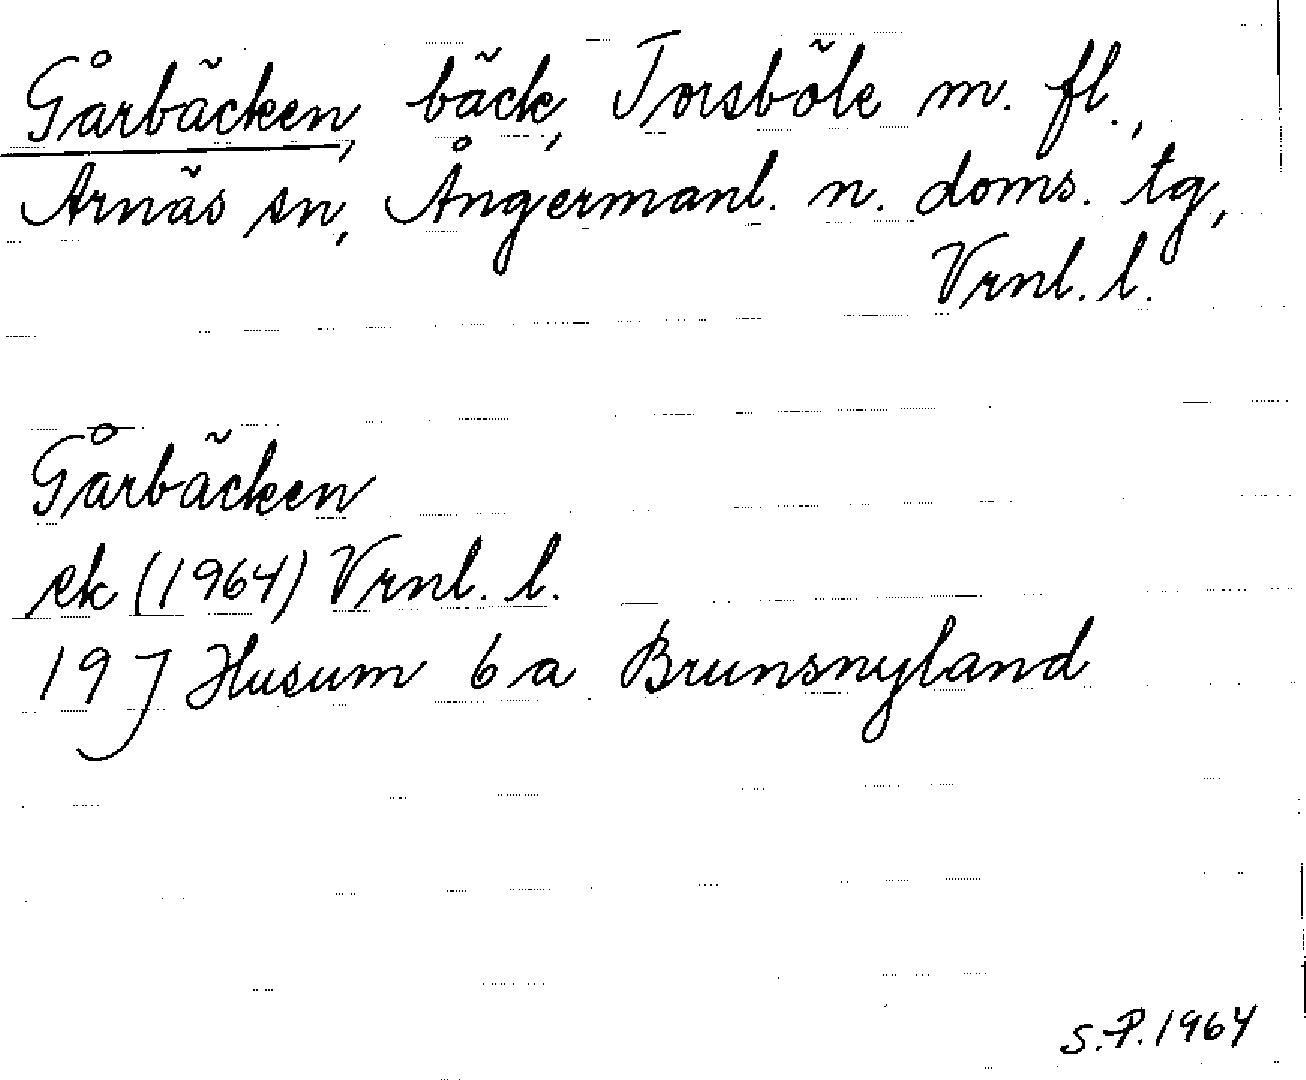 Gårbäcken, bäck, Torsböle m. fl.,
Arnäs sn, Ångermanl. n. doms. tg,
Vrnl. l.
Gårbäcken
ek (1964) Vrnl. l.
19 J Husum 6 a Brunsnyland
S.P. 1964